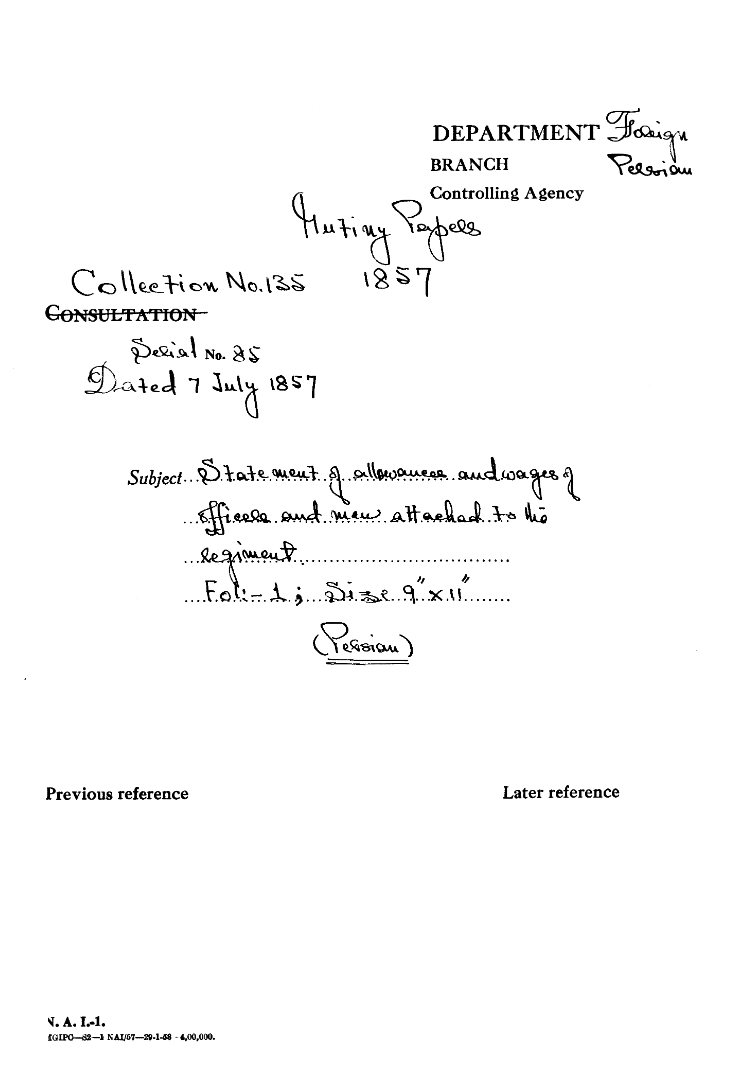 DEPARTMENT Foreign
BRANCH Persian
Controlling Agency
Mutiny Papers
Collection No. 135 1857
CONSULTATION
Serial No. 85
Dated 7 July 1857
Subject... Statement of allowances and wages of
officers and men attached to the
regiment
Fol:- 1; Size 9" x 11"
(Persian)
Previous reference Later reference
N. A. I.-1.
MGIPC—S2—1 NAI/57—29-1-58 - 4,00,000.